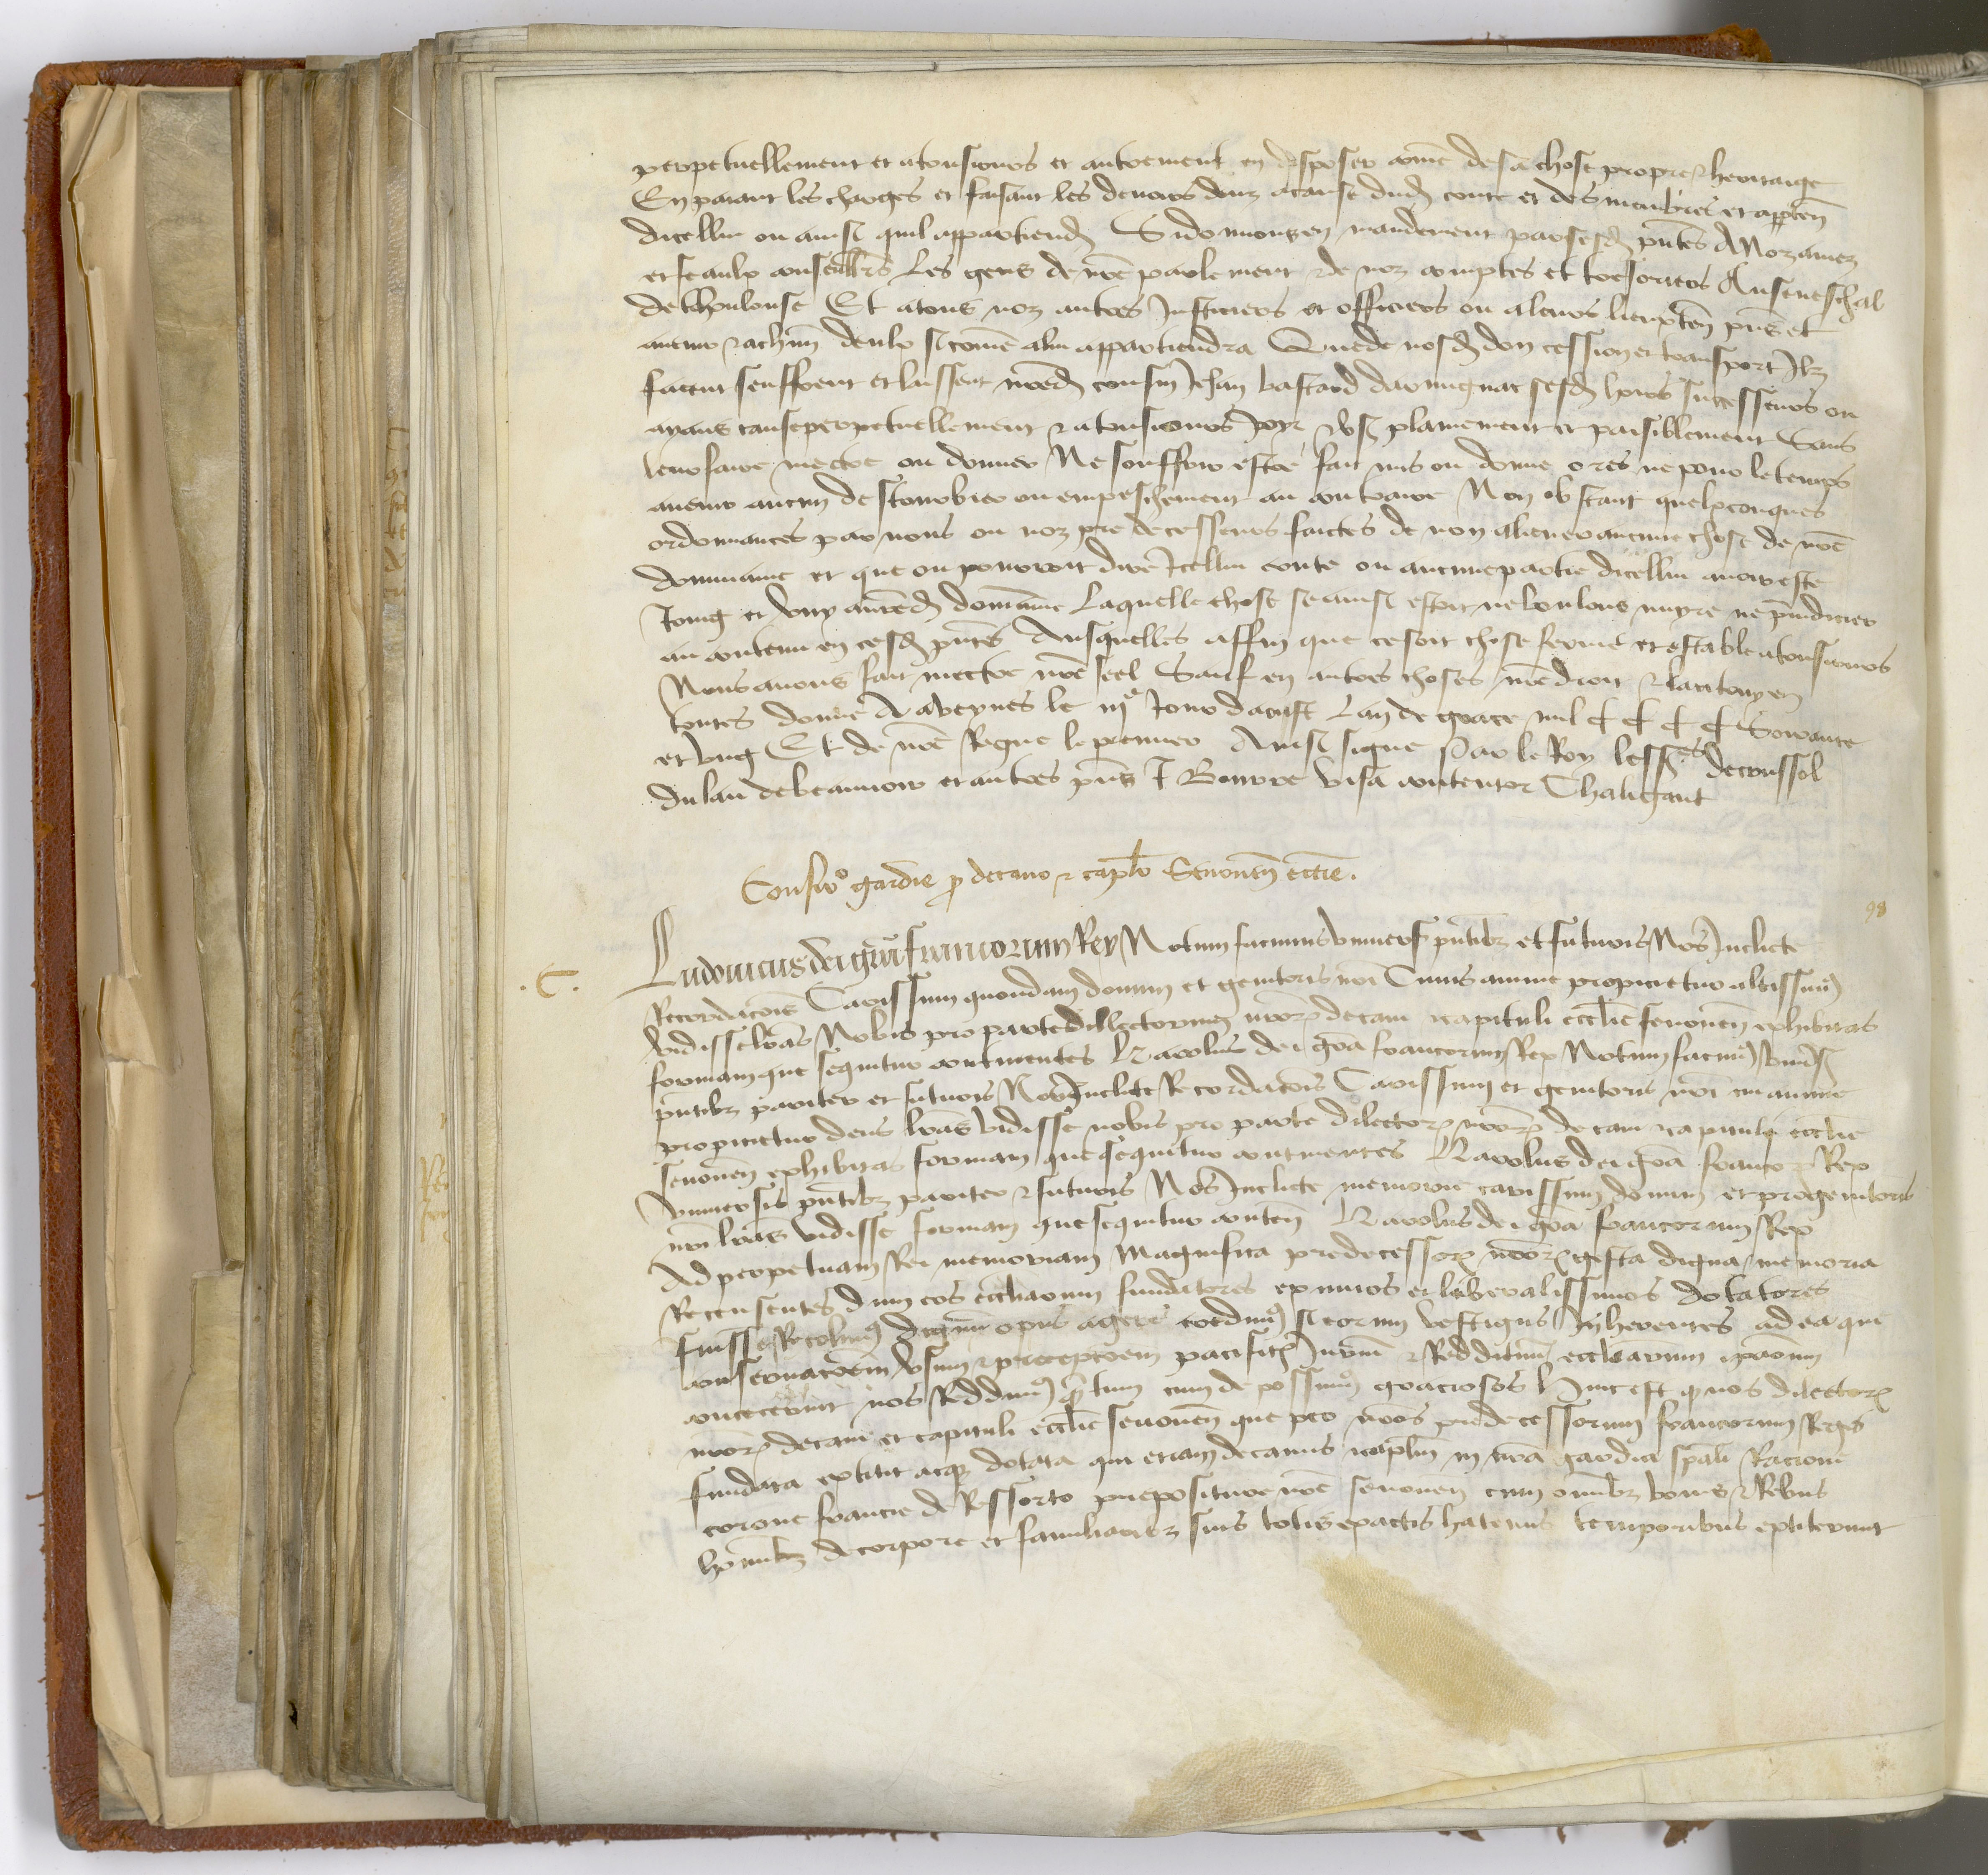 perpetuellement et atousiours et autrement en disposer come de sa chose propre & heritaige
En paiant les charges et faisant les devoirs deuz acause dud conte et des menbres et apparten
dicellui ou ainsi quil appartiend Sidonnonsen mandement parcesd pntes A Noz amez
et feaulx conseillrs Les gens de nre parlement & de noz comptes et tresoriers Auseneschal
dethoulouse Et atous noz autres Justiciers et officiers ou aleurs lieuxten pns et
avenir & achun deulx sicome alui appartiendra Quede nosd don cession et transport Ilz
facent seuffrent et laissent nred cousin Jehan bastard darmignac sesd hoirs successeurs ou
ayans cause perpetuellement & atousiours Joyr & usr plainement et paisiblement Sans
leur faire mectre ou donner Ne souffrir estre fait mis ou donne ores ne pour letemps
avenir aucun destourbier ou empeschement au contraire Non obstant quelxconques
ordonnances par nous ou noz predecesseurs faictes de non aliener aucune chose de nre
dommaine et que on pourroit dire Icellui conte ou aucune partie dicellui avoir este
Joing et uny anred domaine Laquelle chose se ainsi estoit ne voulons nuyre ne preiudicier
au contenu en cesd pntes Ausquelles affin que cesoit chose ferme et estable atousiours
Nous avons fait mectre nre seel Sauf en autres choses nre droit & lautruy en
toutes donne A avesnes le iije Jour daoust Lan de grace mil CCCC Soixante
et ung Et de nre Regne le premier Ainsi signe Par le Roy les srs decrussol
Dulau debeauvoir et autres pns J Bourre Visa contentor Chaligaut
Confirmo gardie p decano & caplo Senonen ecclie.
98
.C.
Ludovicus dei gra francorum Rex Notum facimus universis pntibz et futuris Nos Inclite
Recordacois Carissimi quondam domini et genitoris nri Cuius anime propicietur altissimus
vidisse lras Nobis pro parte dillectorum nror decani & capituli ecclie senonen exhibitas
formam que sequitur continentes Karolus dei gra francorum Rex Notum facimus univsis
pntibz pariter et futuris Nos Inclite Recordacois Carissimi et genitoris nri cui anime
propicietur deus lras vidisse nobis pro parte dilector nror decani & capituli ecclie
senonen exhibitas formam que sequitur continentes Karolus dei gra francor Rex
Universis pntibz pariter & futuris Nos Inclite memorie carissimi domini et progenitoris
nri lras vidisse formam que sequitur conten Karolus dei gra francorum Rex
Ad perpetuam Rei memoriam Magnifica predecessor nror gesta digna memoria
Recensentes dum eos ecclesiarum fundatores eximios et liberalissimos dotatores
fuisse Recolimus dignum opus agere credimus si eorum vestigiis Inherentes ad ea que
conservacoem usum & percepcoem pacific Jurium & Reddituum eccliarum iparum
concernunt nos Reddimus qntum cum deo possumus graciosos Hinc est q nos dilector
nror decani et capituli ecclie senonen que per nros predecessorum francorum Reges
fundata extitit atqz dotata qui etiam decanus & caplm in nra gardia spali Racione
corone francie de Ressorto prepositure nre senonen cum omibz bonis & Rebus
hominibz de corpore et familiaribz suis totis exactis hactenus temporibus extiterunt